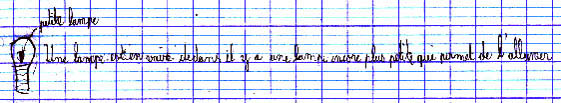 petite lampe
Une lampe est en verre dedans il y a une lampe encore plus petite qui permet de l'allumer